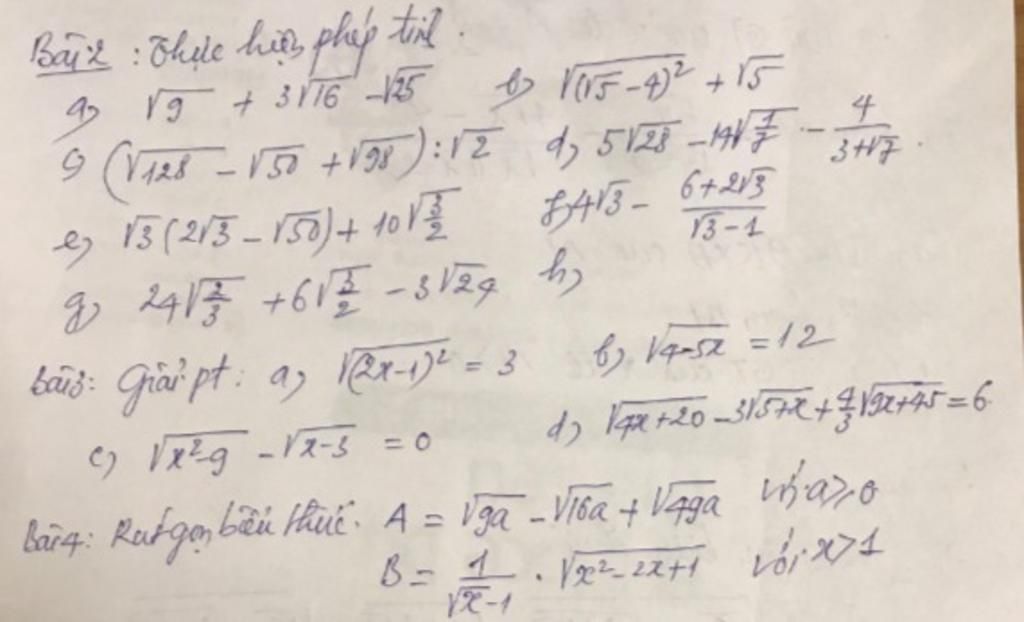 Bài 2 : Thực hiện phép tính.
a, √9 + 3√16 - √25 b, √(√5 - 4)² + √5
c, (√128 - √50 + √98) : √2 d, 5√28 - 14√(1/7) - 4/(3+√7).
e, √3(2√3 - √50) + 10√(3/2) f, 4√3 - (6+2√3)/(√3-1)
g, 24√(2/3) + 6√(3/2) - 3√24 h,
Bài 3: Giải pt: a, √(2x-1)² = 3 b, √(4-5x) = 12
c, √(x²-9) - √(x-3) = 0 d, √(4x+20) - 3√(5+x) + 4/3√(9x+45) = 6
Bài 4: Rút gọn biểu thức. A = √9a - √16a + √49a với a ≥ 0
B = 1/(√x-1) . √(x²-2x+1) với x > 1